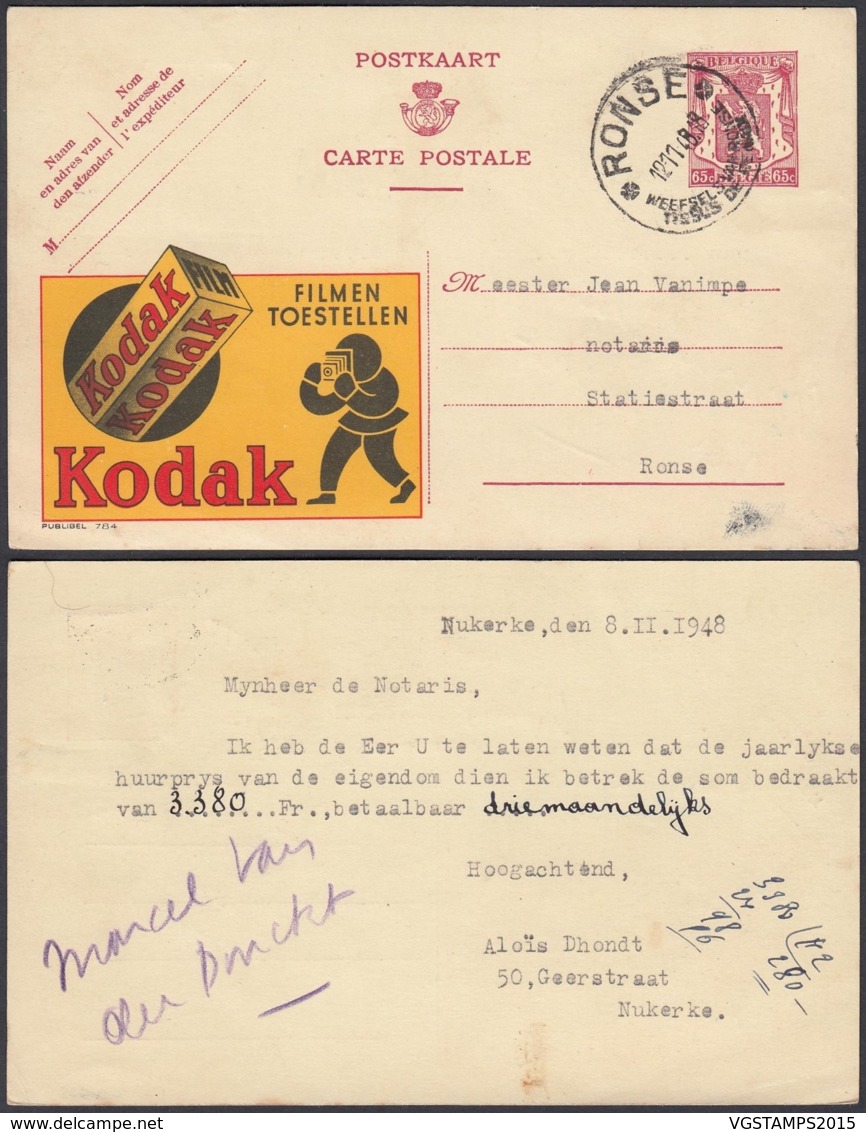 POSTKAART
CARTE POSTALE
Nom
et adresse de
l'expéditeur
Naam
en adres van
den afzender
M
BELGIQUE
65c BELGIE 65c
RONSE
12 11 48
WEEFSELS
TISSUS DE
FILM
Kodak
Kodak
FILMEN
TOESTELLEN
Kodak
PUBLIBEL 784
Meester Jean Vanimpe
notaris
Statiestraat
Ronse
Nukerke,den 8.II.1948
Mynheer de Notaris,
Ik heb de Eer U te laten weten dat de jaarlykse
huurprys van de eigendom dien ik betrek de som bedraakt
van 3.380........Fr.,betaalbaar driemaandelijks
Hoogachtend,
Aloïs Dhondt
50,Geerstraat
Nukerke.
Marcel Van
der Donckt
3380 / 12
98 280
VGSTAMPS2015